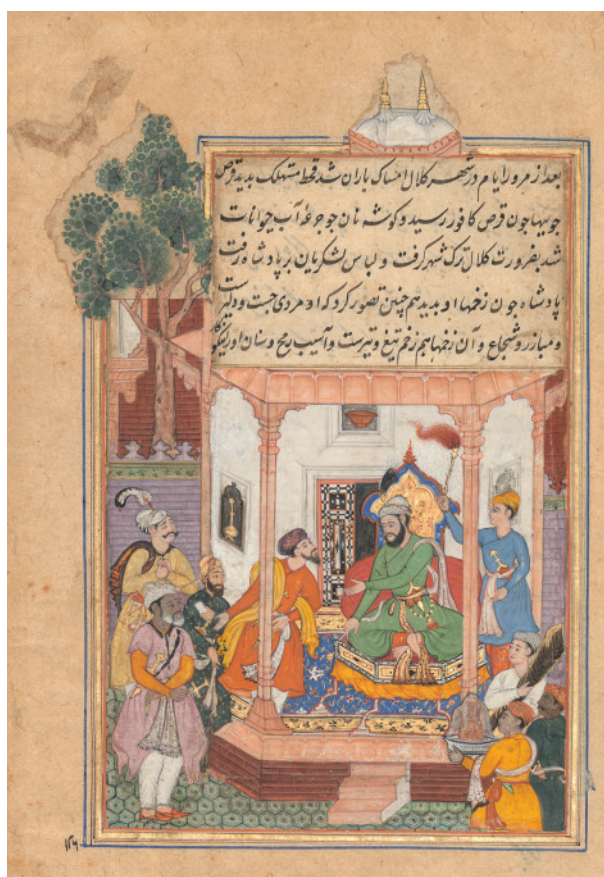 بعد از مرور ایام در شهر کلال امساک باران شد قحط مستهلک بدید قرص
جویها جون قرص کافور رسید و کوشه نان جو جرعهٔ آب حیوانات
شد بضرورت کلال ترک شهر کرفت و لباس لشکریان بر پادشاه رفت
پادشاه جون زخمها او بدید هم چنین تصور کرد که او مردی جست و دلیرست
و مبارز و شجاع و آن زخمها هم زخم تیغ و تیرست و آسیب رمح و سنان او را نیکو